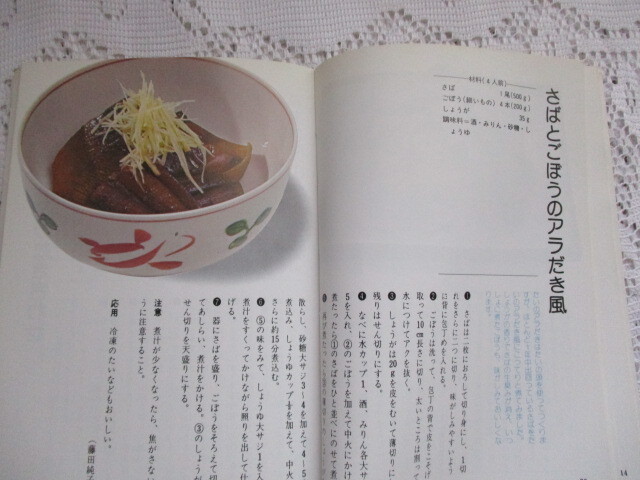 さばとごぼうのアラだき風
材料(4人前)
さば 1尾(500g)
ごぼう(細いもの) 4本(200g)
しょうが 35g
調味料=酒・みりん・砂糖・し
ょうゆ
❶ さばは二枚におろして切り身にし、1切
れをさらに二つに切り、味がしみやすいよう
に皮に包丁めを入れる。
❷ ごぼうは洗って、包丁の背で皮をこそげ
取って10cm長さに切り、太いところは割って
水につけてアクを抜く。
❸ しょうがは20gを皮をむいて薄切りに、
残りはせん切りにする。
❹ なべに水カップ1、酒、みりん各大サジ
5を入れ、②のごぼうを加えて中火にかけ、
煮たったら①のさばをひと並べにのせて煮
散らし、砂糖大サジ3〜4を加えて4〜5
煮込み、しょうゆカップ½を加えて、中火
さらに約15分煮込む。
❻ ⑤の味をみて、しょうゆ大サジ1を入
煮汁をすくってかけながら照りを出して仕
げる。
❼ 器にさばを盛り、ごぼうをそろえて切
てあしらい、煮汁をかける。③のしょうが
せん切りを天盛りにする。
注意 煮汁が少なくなったら、焦がさない
うに注意すること。
応用 冷凍のたいなどもおいしい。
(藤田純子
14